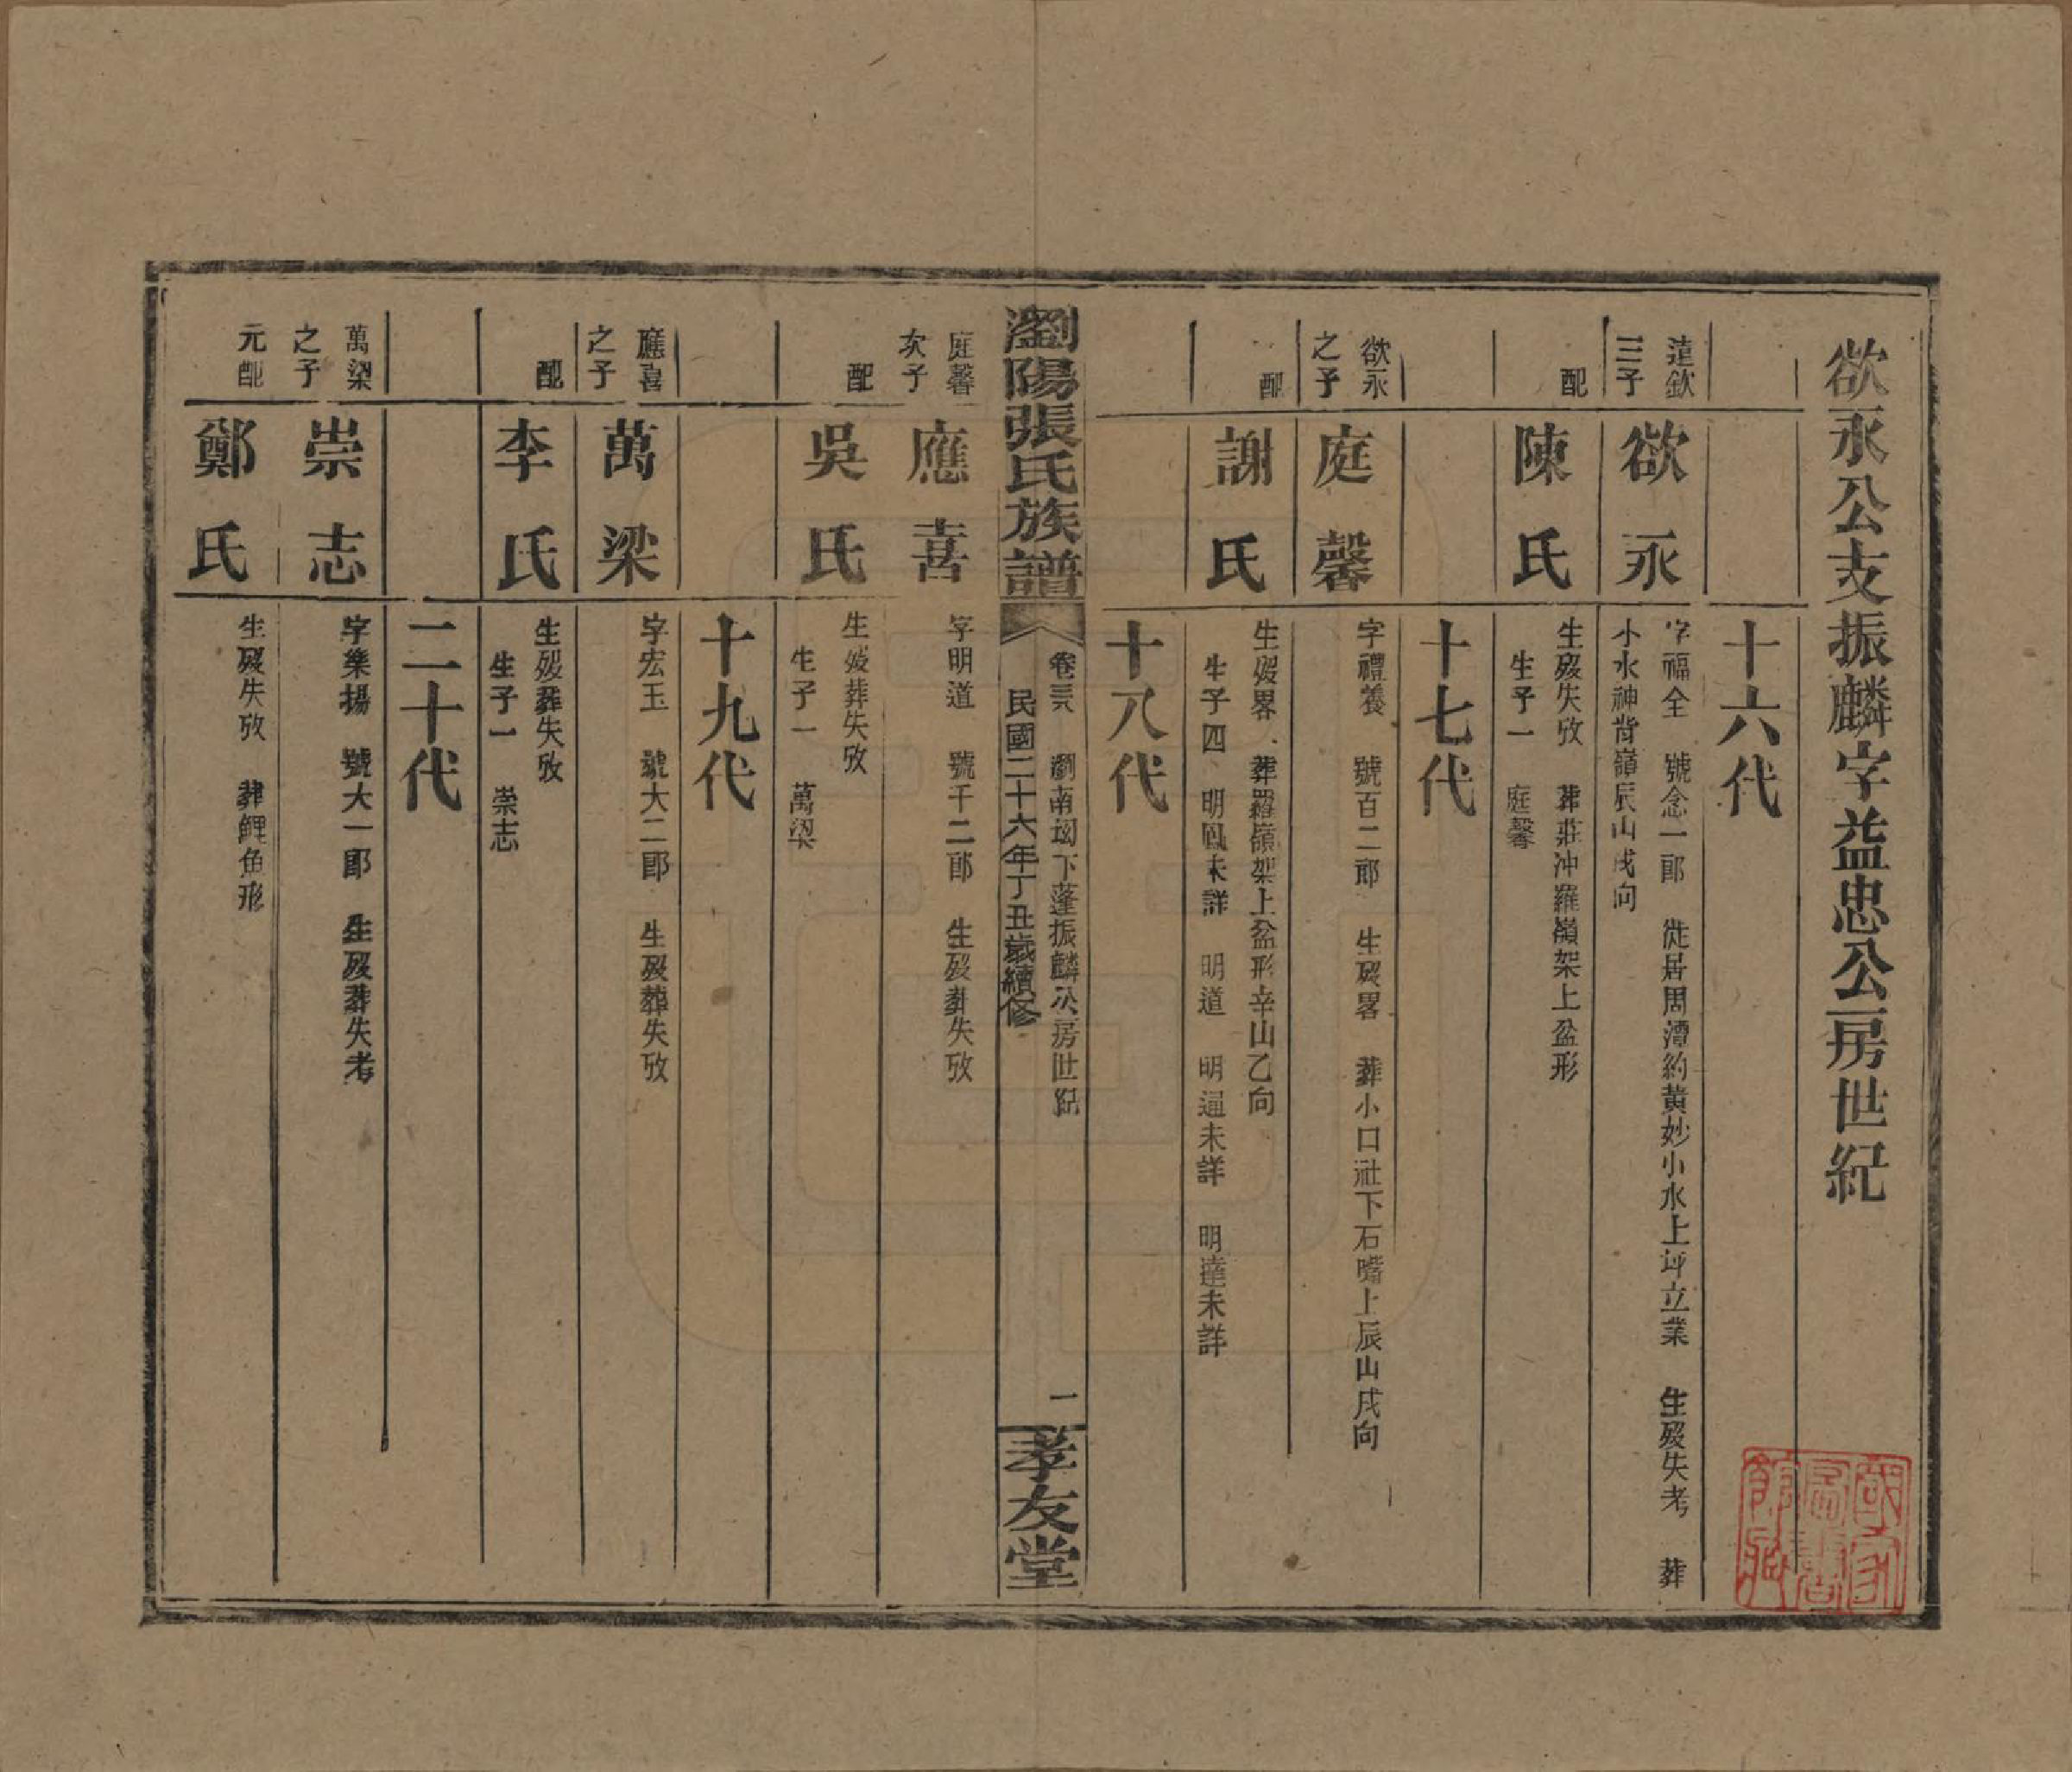 欲永公支振麟字益忠公房世紀
十六代
遠欽三子
欲永
字福全　號念一郎　徙居周潭約黃妙小水上坪立業　生歿失考　葬
小水神背嶺辰山戌向
配
陳氏
生歿失攷　葬莊冲羅嶺架上盆形
生子一　庭馨
十七代
欲永之子
庭馨
字禮養　號百二郎　生歿畧　葬小口社下石嘴上辰山戌向
配
謝氏
生歿畧　葬羅嶺架上盆形辛山乙向
生子四　明鳳未詳　明道　明通未詳　明達未詳
十八代
瀏陽張氏族譜
卷三八　瀏南坳下蓬振麟公房世紀　一
民國二十六年丁丑歲續修
孝友堂
庭馨次子
應喜
字明道　號千二郎　生歿葬失攷
配
吳氏
生歿葬失攷
生子一　萬梁
十九代
應喜之子
萬梁
字宏玉　號大二郎　生歿葬失攷
配
李氏
生歿葬失攷
生子一　崇志
二十代
萬梁之子
崇志
字樂揚　號大一郎　生歿葬失考
元配
鄭氏
生歿失攷　葬鯉魚形
國家圖書館藏